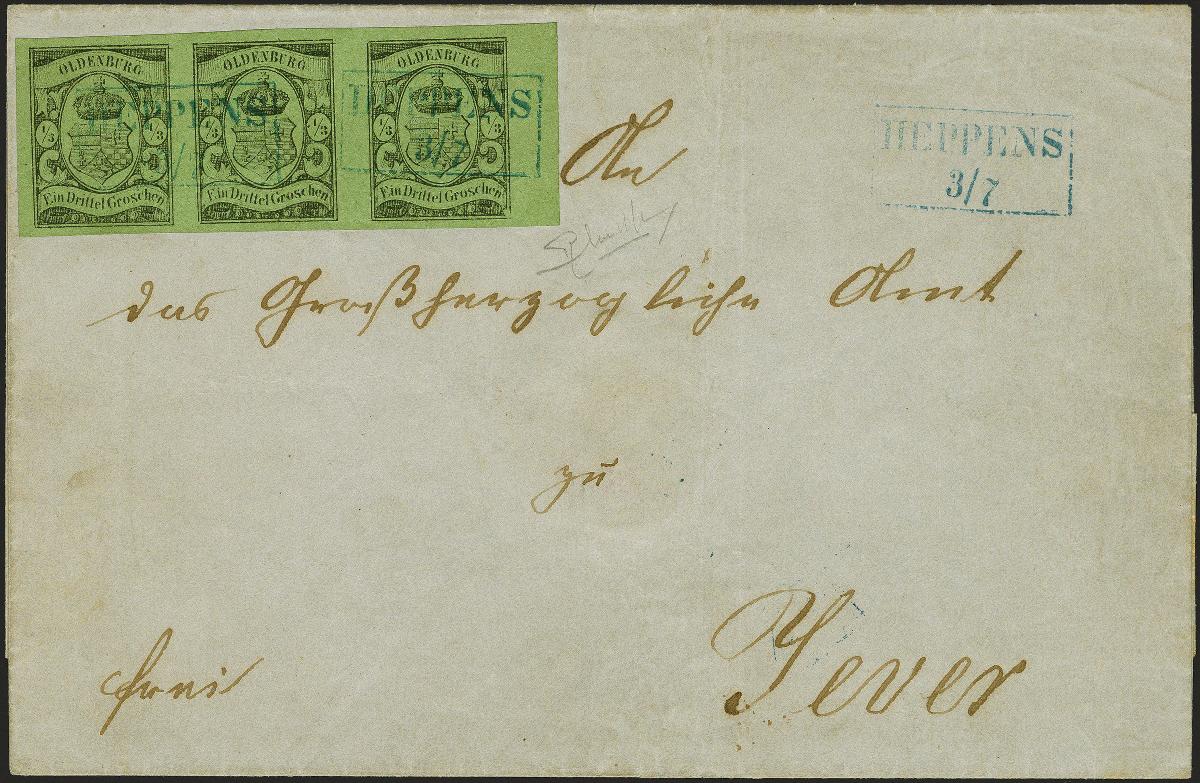 OLDENBURG OLDENBURG OLDENBURG
1/3 1/3 1/3 1/3 1/3 1/3
Ein Drittel Groschen Ein Drittel Groschen Ein Drittel Groschen
HEPPENS
3/7
HEPPENS
3/7
HEPPENS
3/7
An
das Großherzogliche Amt
zu
Jever
frei